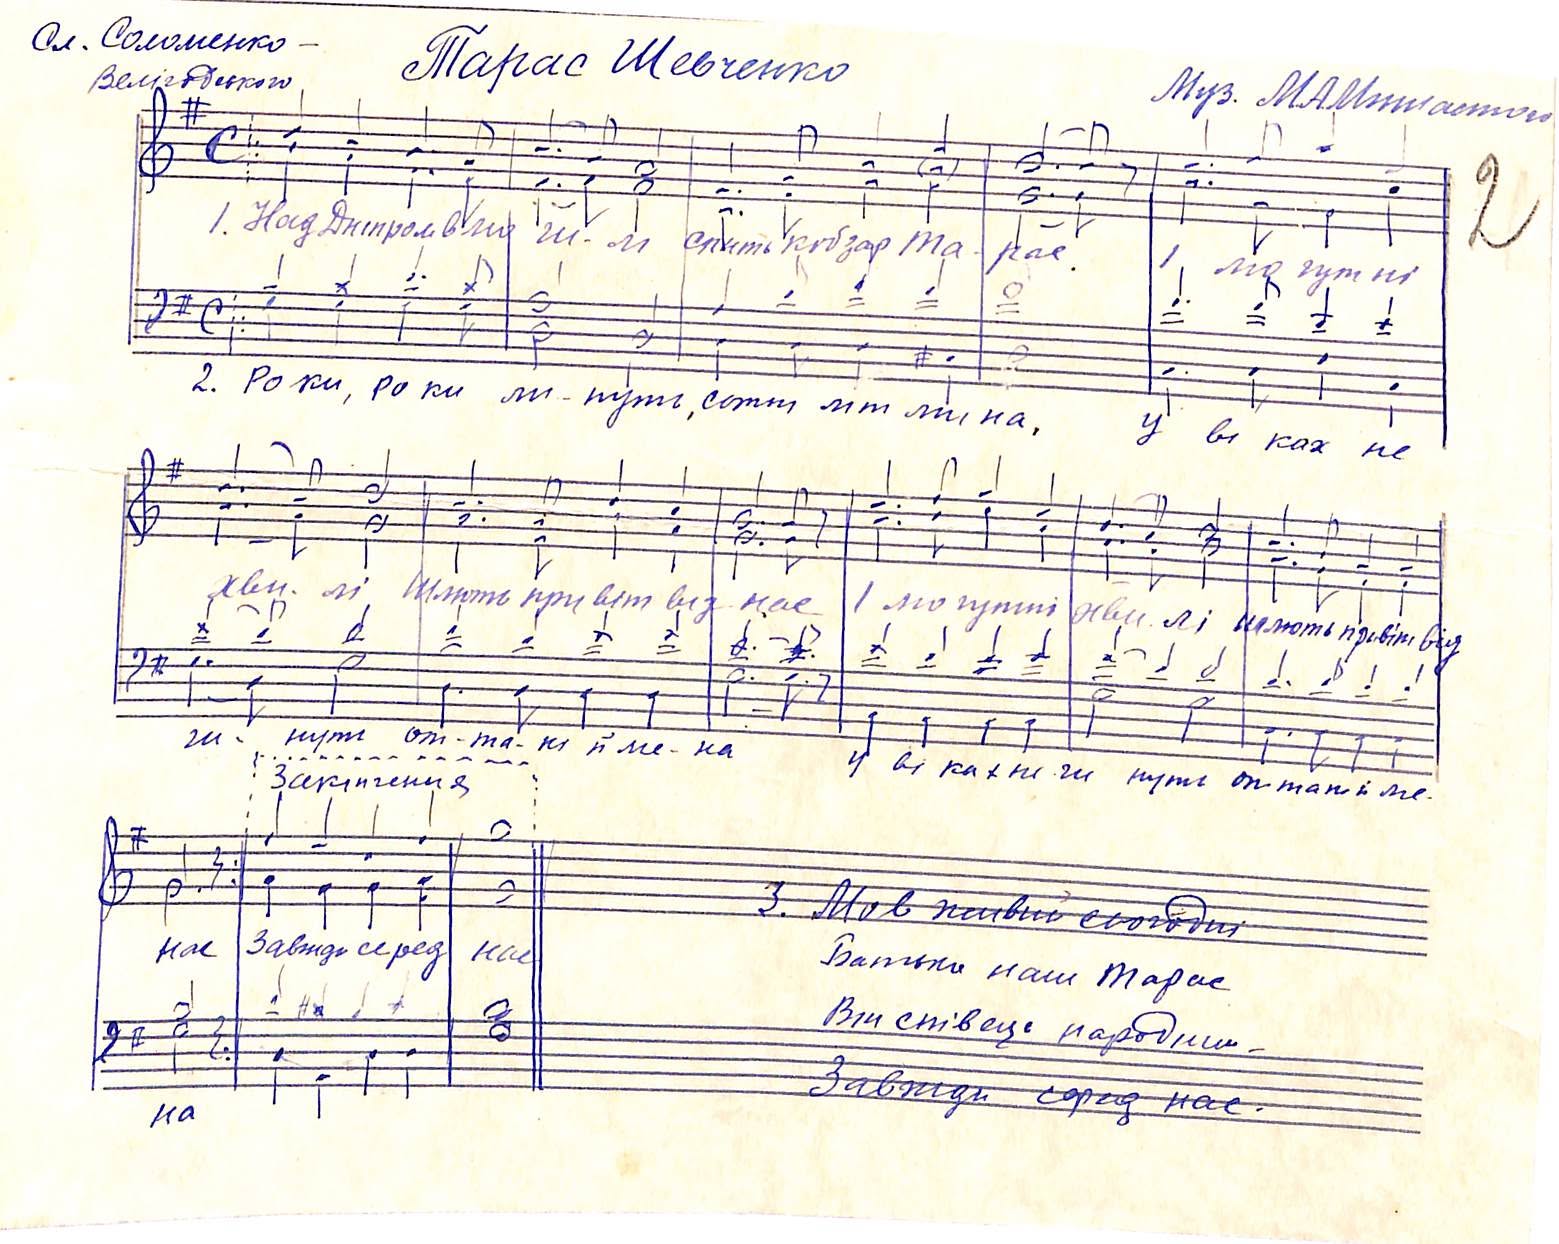 Сл. Соломенко-
Велігодського
Тарас Шевченко
Муз.
2
1. Над Дніпром в мо ги- лі спить кобзар Та- рас. І мо гутні
2. Роки, роки ли- нуть, сотні літ мина, У ві ках не
хви- лі Шлють привіт від нас І могутні хви- лі шлють привіт від
ги- нуть от- та- кі й ме- на У ві ках не ги нуть от такі й ме-
Закінчення
нас Завжди серед нас
на
3. Мов живий сьогодні
Батько наш Тарас
Він співець народний-
Завжди серед нас.